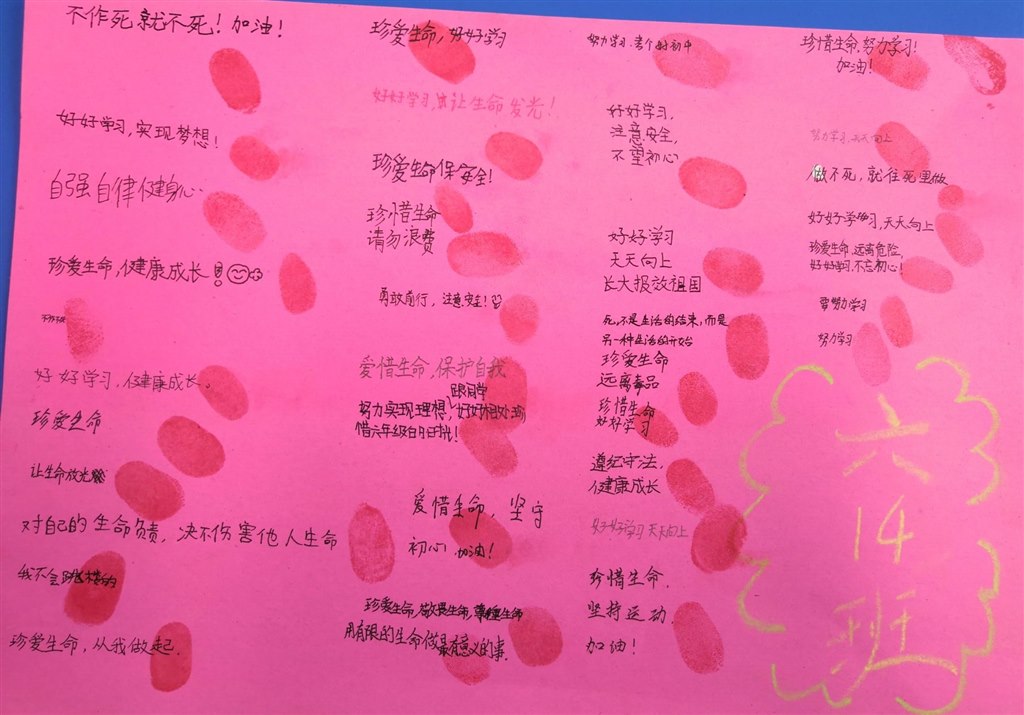 不作死就不死！加油！
好好学习,实现梦想！
自强自律健身心
珍爱生命,健康成长！
好好学习,健康成长。
珍爱生命
让生命放光
对自己的生命负责，决不伤害他人生命
我不会跳楼的
珍爱生命,从我做起.
珍爱生命,好好学习
好好学习,让生命发光！
珍爱生命保安全!
珍惜生命
请勿浪费
勇敢前行，注意安全!
爱惜生命,保护自我
跟同学
努力实现理想!好好相处珍
惜六年级时光!
爱惜生命，坚守
初心 加油！
珍爱生命,敬畏生命,尊重生命
用有限的生命做最有意义的事.
努力学习.考个好初中
好好学习,
注意安全,
不望初心
好好学习
天天向上
长大报效祖国
死,不是生活的结束,而是
另一种生活的开始
珍爱生命
远离毒品
珍惜生命
好好学习
遵纪守法,
健康成长
好好学习天天向上
珍惜生命.
坚持运动.
加油！
珍惜生命.努力学习!
加油!
努力学习.天天向上
做不死，就往死里做
好好学学习,天天向上
珍爱生命.远离危险,
好好学习.不忘初心!
要努力学习
努力学习
六
14
班